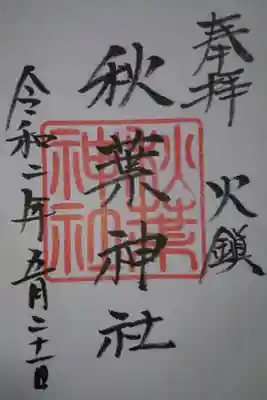 奉拝
火鎮
秋葉神社
秋葉神社
令和二年五月二十一日